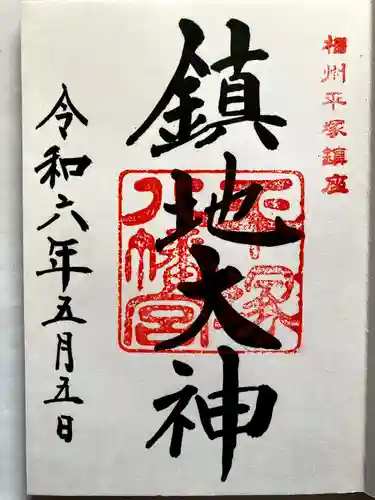 相州平塚鎮座
鎮地大神
平塚
八幡宮
令和六年五月五日